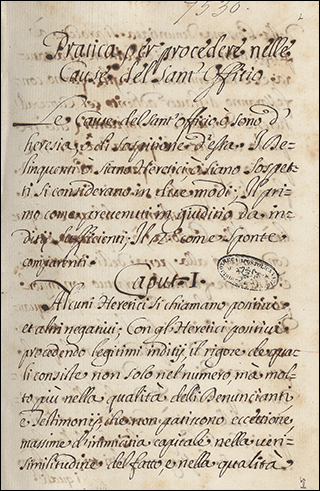 7530.
Pratica per procedere nelle
Cause del Sant' Officio
Le Cause del Sant' officio ò sono d'
heresia, ò di sospitione d'essa. I De-
linquenti ò siano Heretici ò siano Sospet-
ti si considerano in due modi; Il pri-
mo come prevenuti in giuditio da in-
ditij sufficienti; Il 2.º come sponte
comparenti.
Caput I.
Alcuni Heretici si chiamano positivi
et altri negativi; Con gli Heretici positivi
procedendo legitimi inditij, il rigore de qua-
li consiste non solo nel numero, ma mol-
to più nella qualità delli Denuncianti
e Testimonij, che non patiscono eccettione,
massime d'inimicitia capitale nella veri-
similitudine del fatto e nella qualità